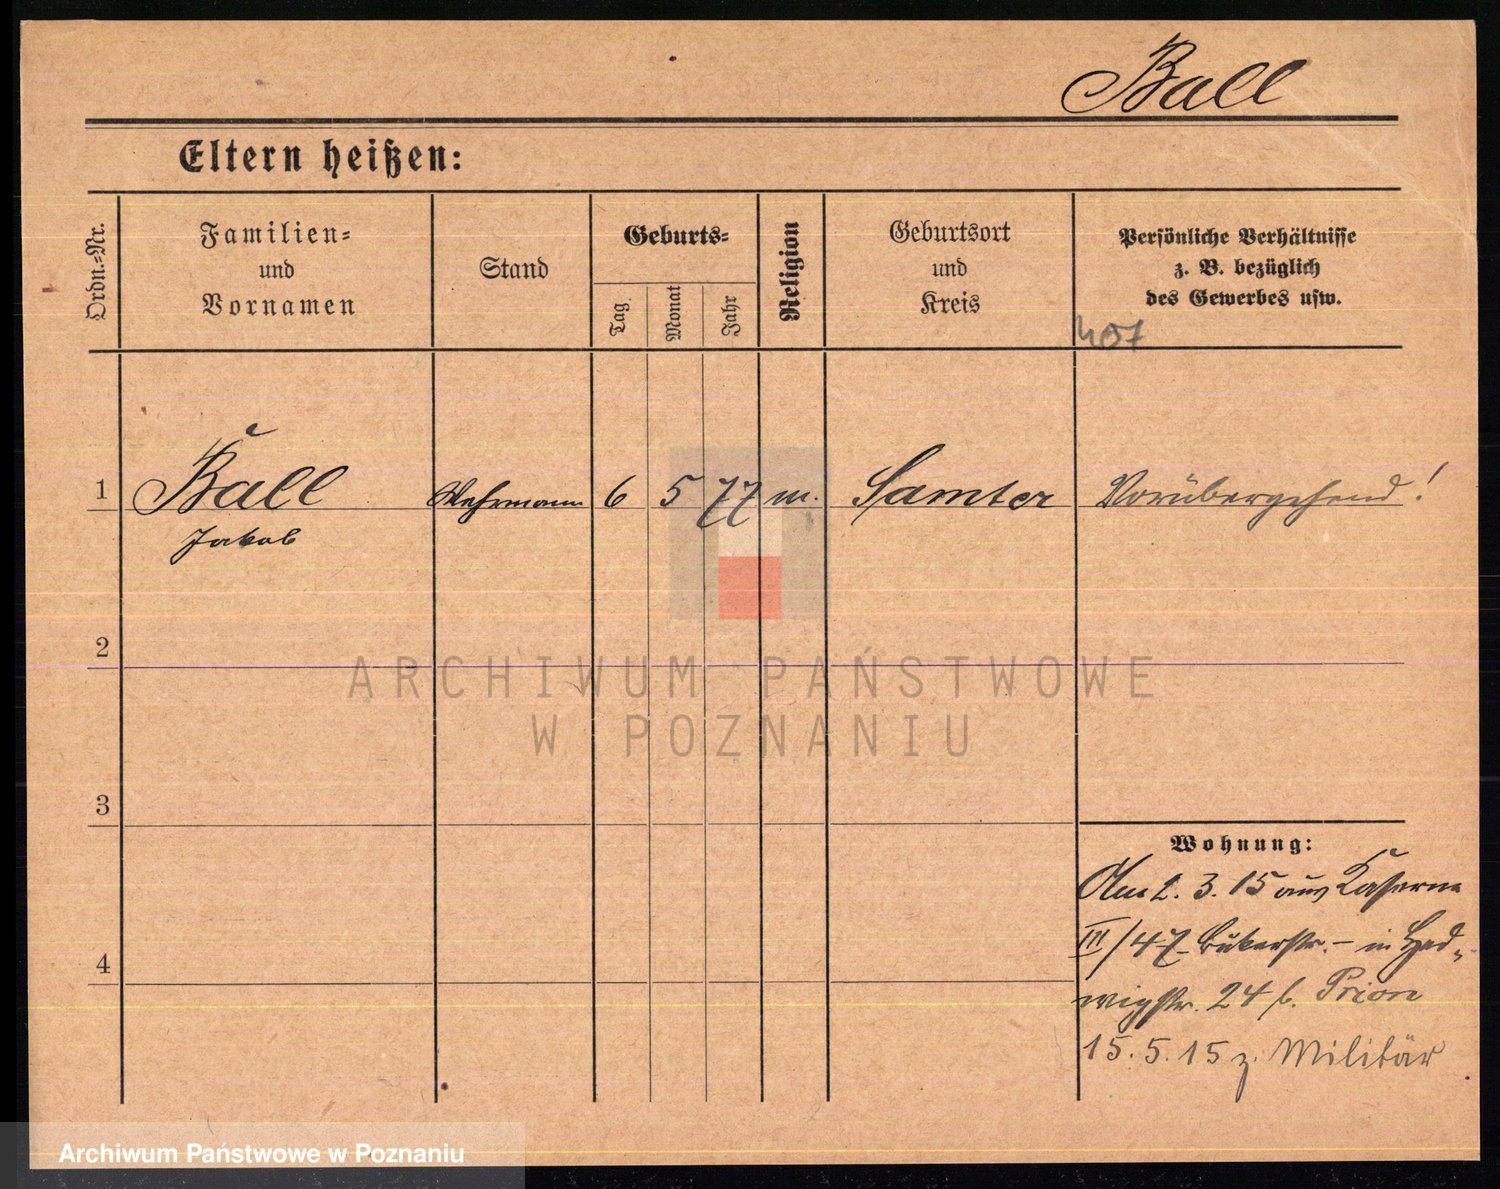 Ball
Eltern heißen:
Ordn.-Nr.
Familien-
und
Vornamen
Stand
Geburts-
Tag.
Monat
Jahr
Religion
Geburtsort
und
Kreis
Persönliche Verhältnisse
z. B. bezüglich
des Gewerbes usw.
407
1
Ball
Jakob
Wehrmann
6
5
77
m.
Samter
Vorübergehend!
2
ARCHIWUM PAŃSTWOWE
W POZNANIU
3
Wohnung:
Am 2. 3. 15 aus Kaserne
III/47 Bukerstr. – in Hed-
4
wigstr. 24 b. Prior
15. 5. 15 z. Militär
Archiwum Państwowe w Poznaniu